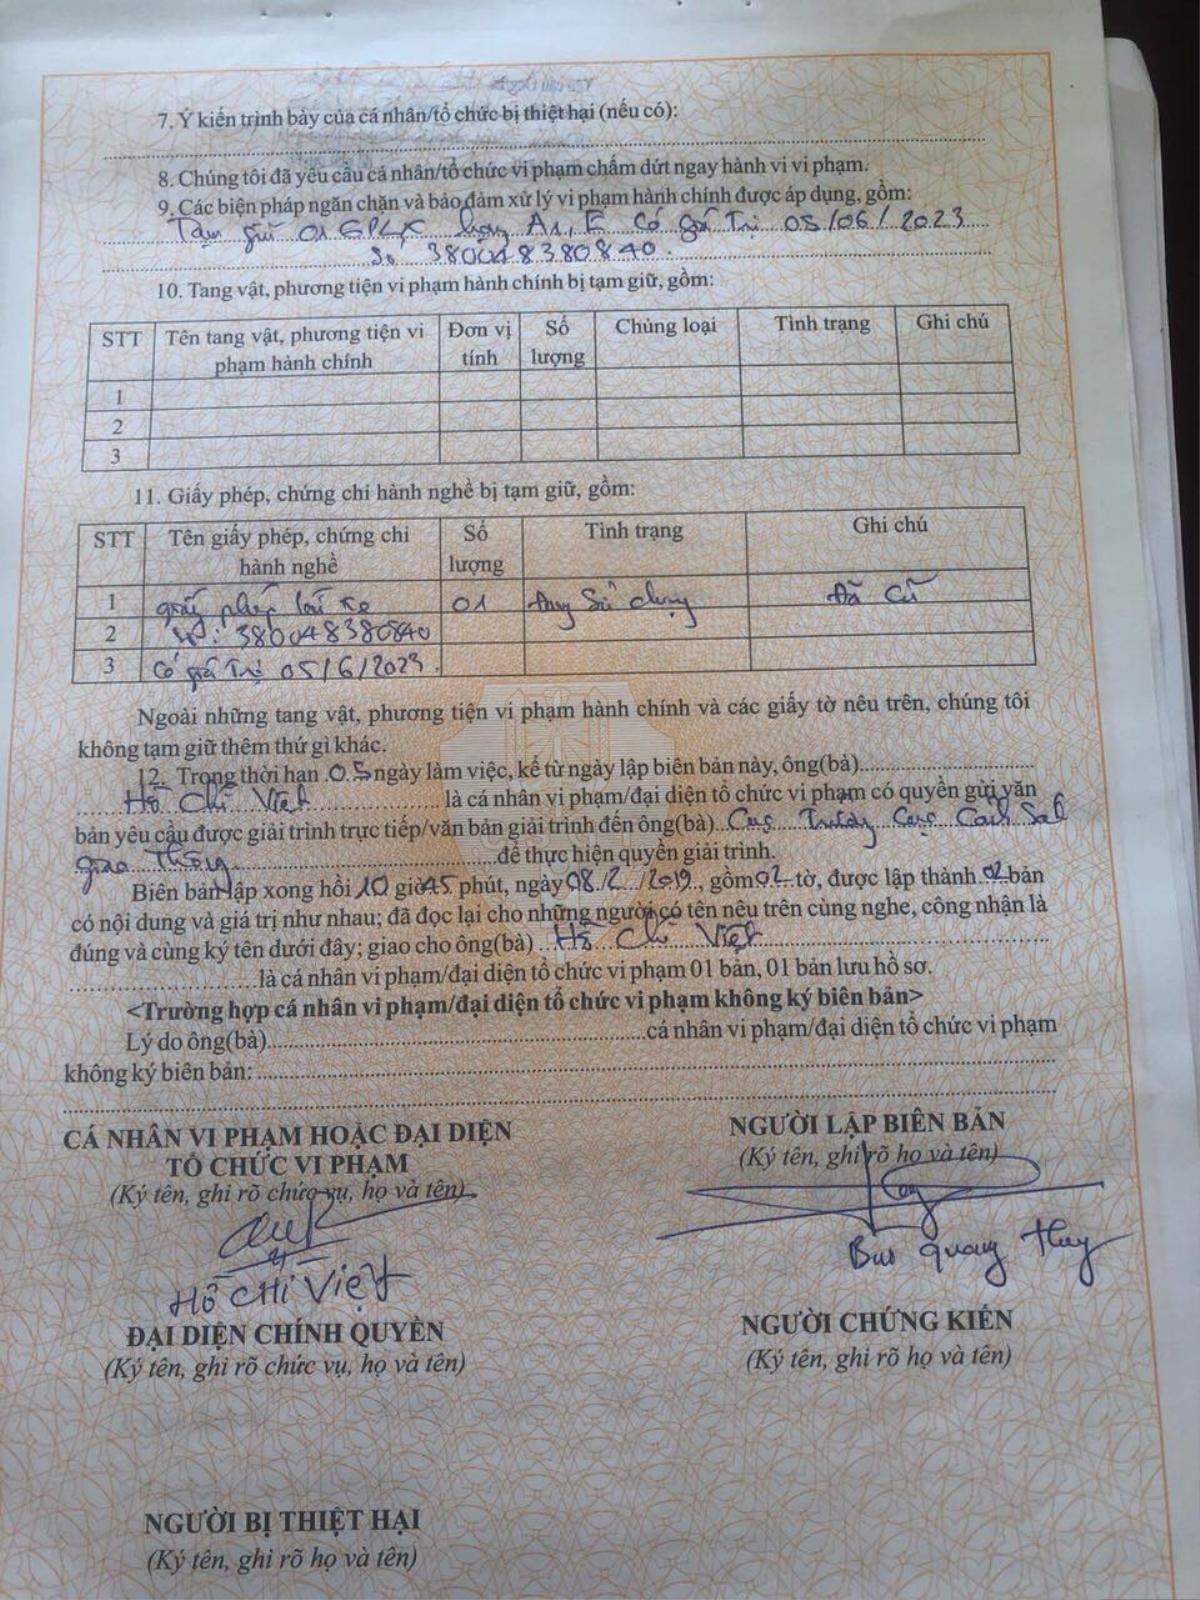 7. Ý kiến trình bày của cá nhân/tổ chức bị thiệt hại (nếu có):
8. Chúng tôi đã yêu cầu cá nhân/tổ chức vi phạm chấm dứt ngay hành vi vi phạm.
9. Các biện pháp ngăn chặn và bảo đảm xử lý vi phạm hành chính được áp dụng, gồm:
Tạm giữ 01 GPLX hạng A1, E Có giá Trị 05/06/2023
Số 380048380840.
10. Tang vật, phương tiện vi phạm hành chính bị tạm giữ, gồm:
STT Tên tang vật, phương tiện vi phạm hành chính Đơn vị tính Số lượng Chủng loại Tình trạng Ghi chú
1
2
3
11. Giấy phép, chứng chỉ hành nghề bị tạm giữ, gồm:
STT Tên giấy phép, chứng chỉ hành nghề Số lượng Tình trạng Ghi chú
1 giấy phép lái xe 01 đang Sử dụng Đã Cũ
2 Số: 380048380840
3 Có giá Trị 05/6/2023.
Ngoài những tang vật, phương tiện vi phạm hành chính và các giấy tờ nêu trên, chúng tôi
không tạm giữ thêm thứ gì khác.
12. Trong thời hạn 05 ngày làm việc, kể từ ngày lập biên bản này, ông(bà)
Hồ Chí Việt là cá nhân vi phạm/đại diện tổ chức vi phạm có quyền gửi văn
bản yêu cầu được giải trình trực tiếp/văn bản giải trình đến ông(bà) Cục Trưởng Cục Cảnh Sát
giao Thông để thực hiện quyền giải trình.
Biên bản lập xong hồi 10 giờ 45 phút, ngày 08/2/2019, gồm 02 tờ, được lập thành 02 bản
có nội dung và giá trị như nhau; đã đọc lại cho những người có tên nêu trên cùng nghe, công nhận là
đúng và cùng ký tên dưới đây; giao cho ông(bà) Hồ Chí Việt
là cá nhân vi phạm/đại diện tổ chức vi phạm 01 bản, 01 bản lưu hồ sơ.
<Trường hợp cá nhân vi phạm/đại diện tổ chức vi phạm không ký biên bản>
Lý do ông(bà) cá nhân vi phạm/đại diện tổ chức vi phạm
không ký biên bản:
CÁ NHÂN VI PHẠM HOẶC ĐẠI DIỆN
TỔ CHỨC VI PHẠM
(Ký tên, ghi rõ chức vụ, họ và tên)
HỒ CHÍ VIỆT
NGƯỜI LẬP BIÊN BẢN
(Ký tên, ghi rõ họ và tên)
Bùi Quang Huy
ĐẠI DIỆN CHÍNH QUYỀN
(Ký tên, ghi rõ chức vụ, họ và tên)
NGƯỜI CHỨNG KIẾN
(Ký tên, ghi rõ họ và tên)
NGƯỜI BỊ THIỆT HẠI
(Ký tên, ghi rõ họ và tên)